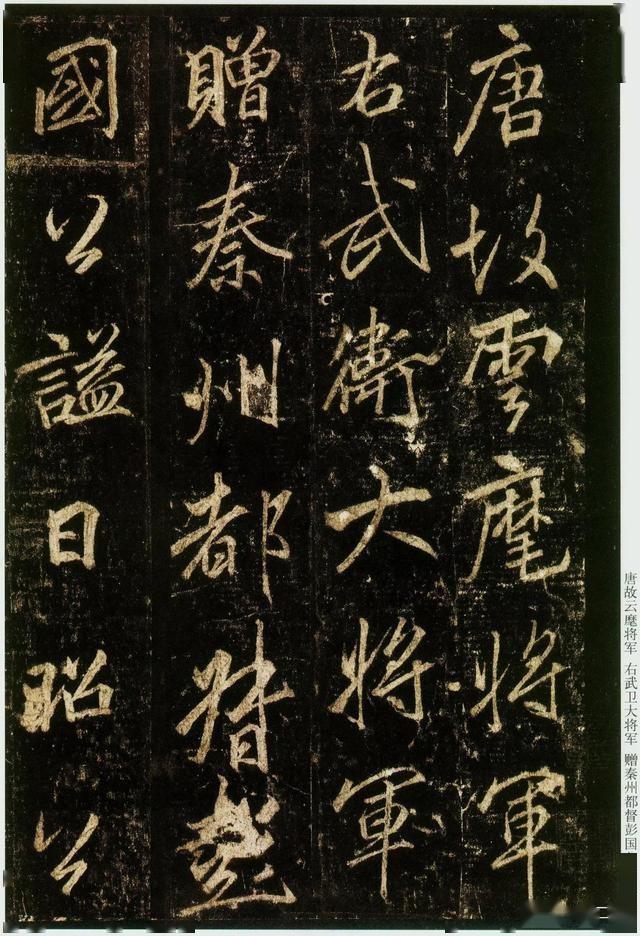 唐故雲麾將軍
右武衛大將軍
贈秦州都督彭
國公謚曰昭公
唐故云麾将军 右武卫大将军 赠秦州都督彭国
二